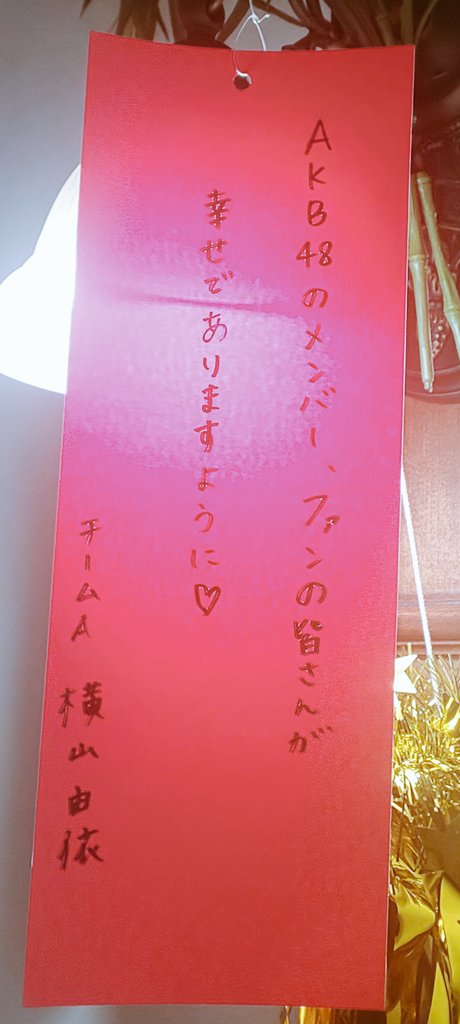 AKB48のメンバー、ファンの皆さんが
幸せでありますように♡
チームA 横山由依